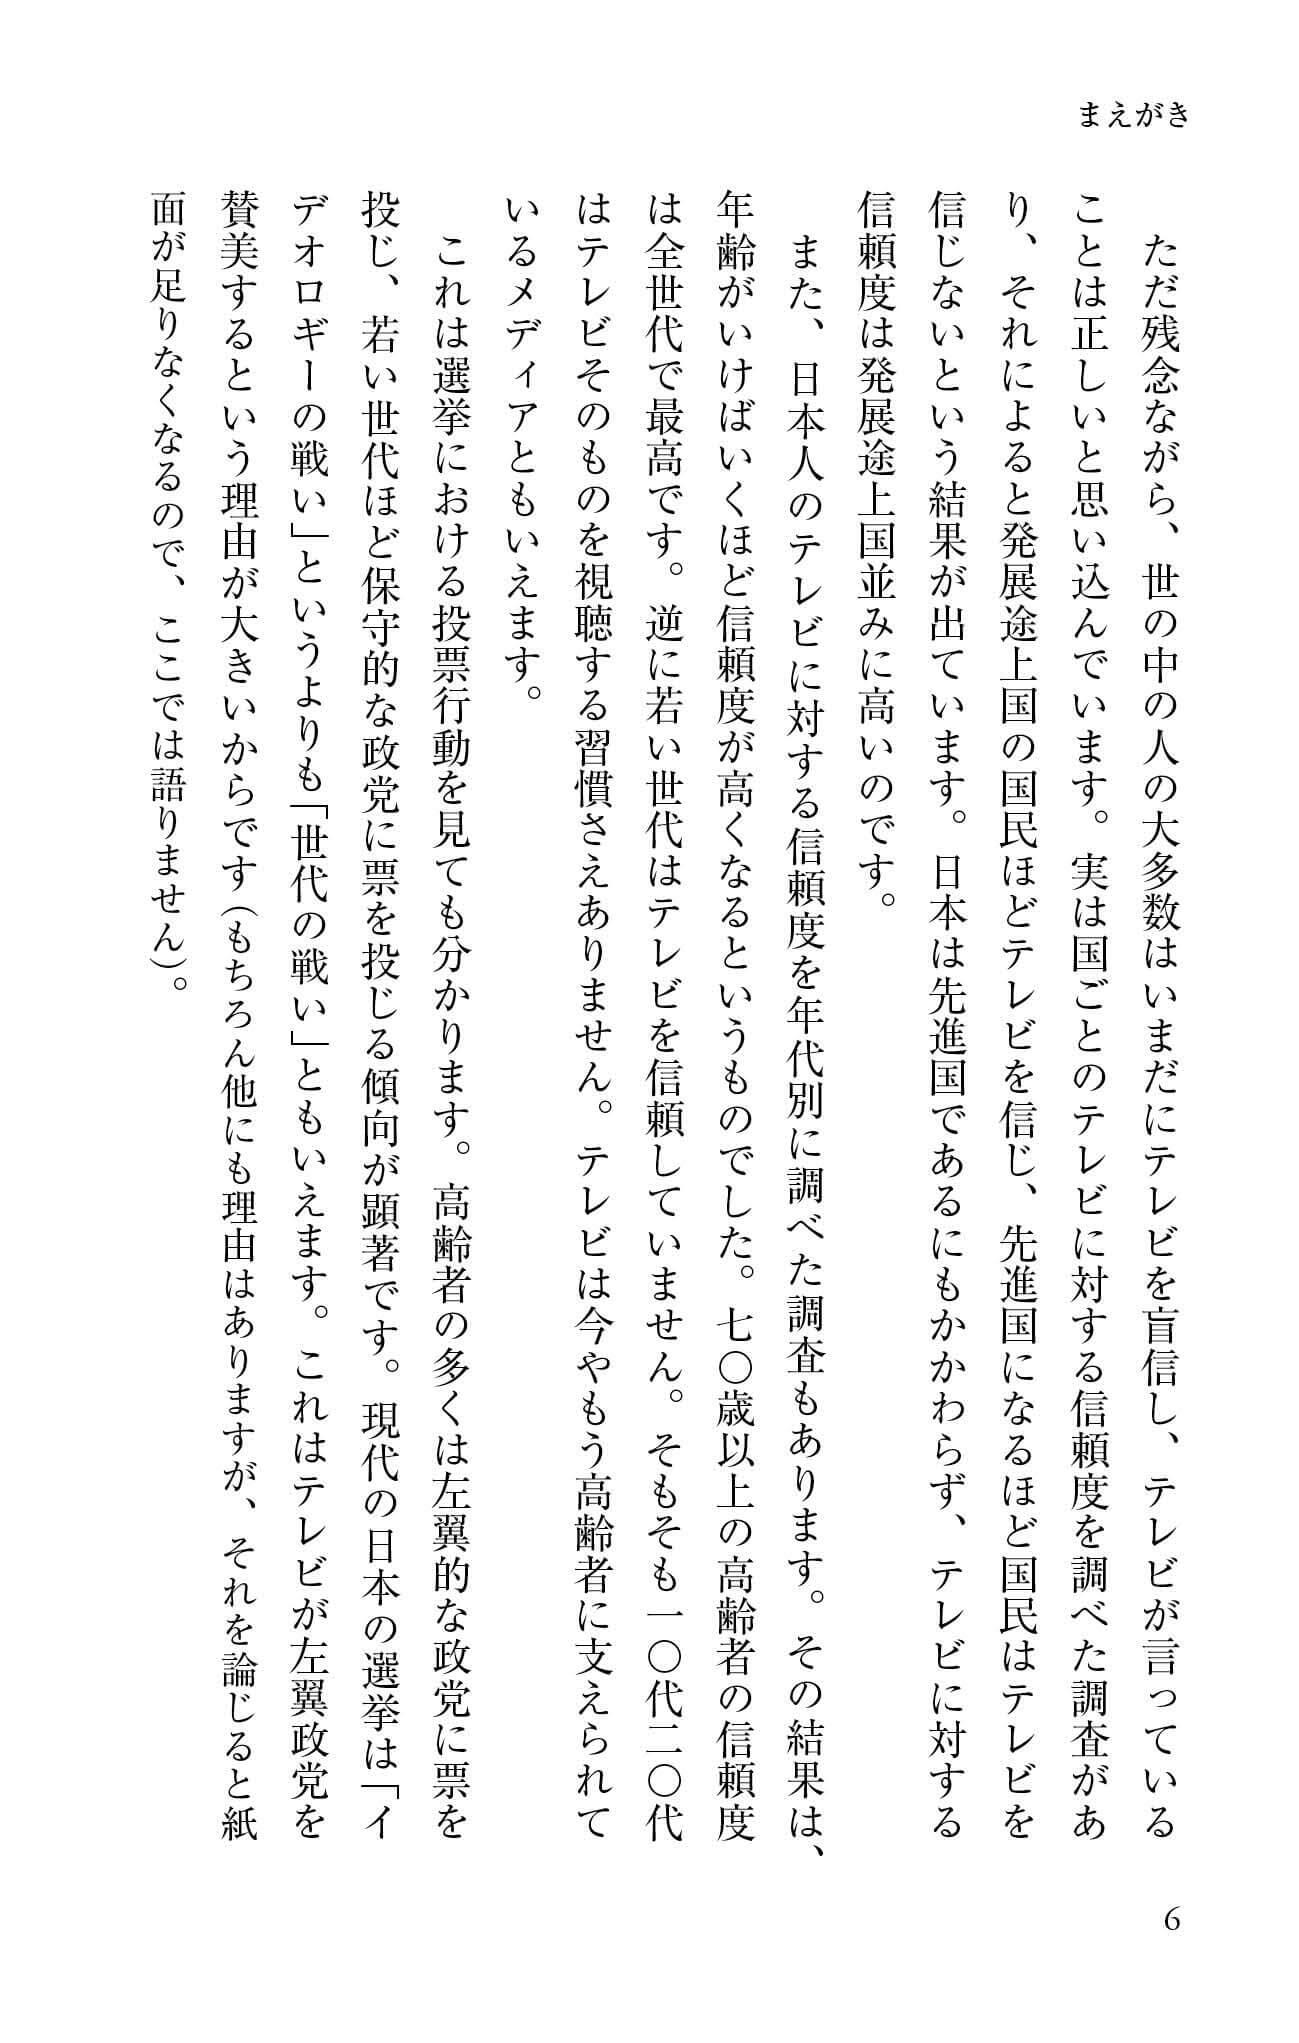 まえがき
ただ残念ながら、世の中の人の大多数はいまだにテレビを盲信し、テレビが言っている
ことは正しいと思い込んでいます。実は国ごとのテレビに対する信頼度を調べた調査があ
り、それによると発展途上国の国民ほどテレビを信じ、先進国になるほど国民はテレビを
信じないという結果が出ています。日本は先進国であるにもかかわらず、テレビに対する
信頼度は発展途上国並みに高いのです。
また、日本人のテレビに対する信頼度を年代別に調べた調査もあります。その結果は、
年齢がいけばいくほど信頼度が高くなるというものでした。七〇歳以上の高齢者の信頼度
は全世代で最高です。逆に若い世代はテレビを信頼していません。そもそも一〇代二〇代
はテレビそのものを視聴する習慣さえありません。テレビは今やもう高齢者に支えられて
いるメディアともいえます。
これは選挙における投票行動を見ても分かります。高齢者の多くは左翼的な政党に票を
投じ、若い世代ほど保守的な政党に票を投じる傾向が顕著です。現代の日本の選挙は「イ
デオロギーの戦い」というよりも「世代の戦い」ともいえます。これはテレビが左翼政党を
賛美するという理由が大きいからです(もちろん他にも理由はありますが、それを論じると紙
面が足りなくなるので、ここでは語りません)。
6